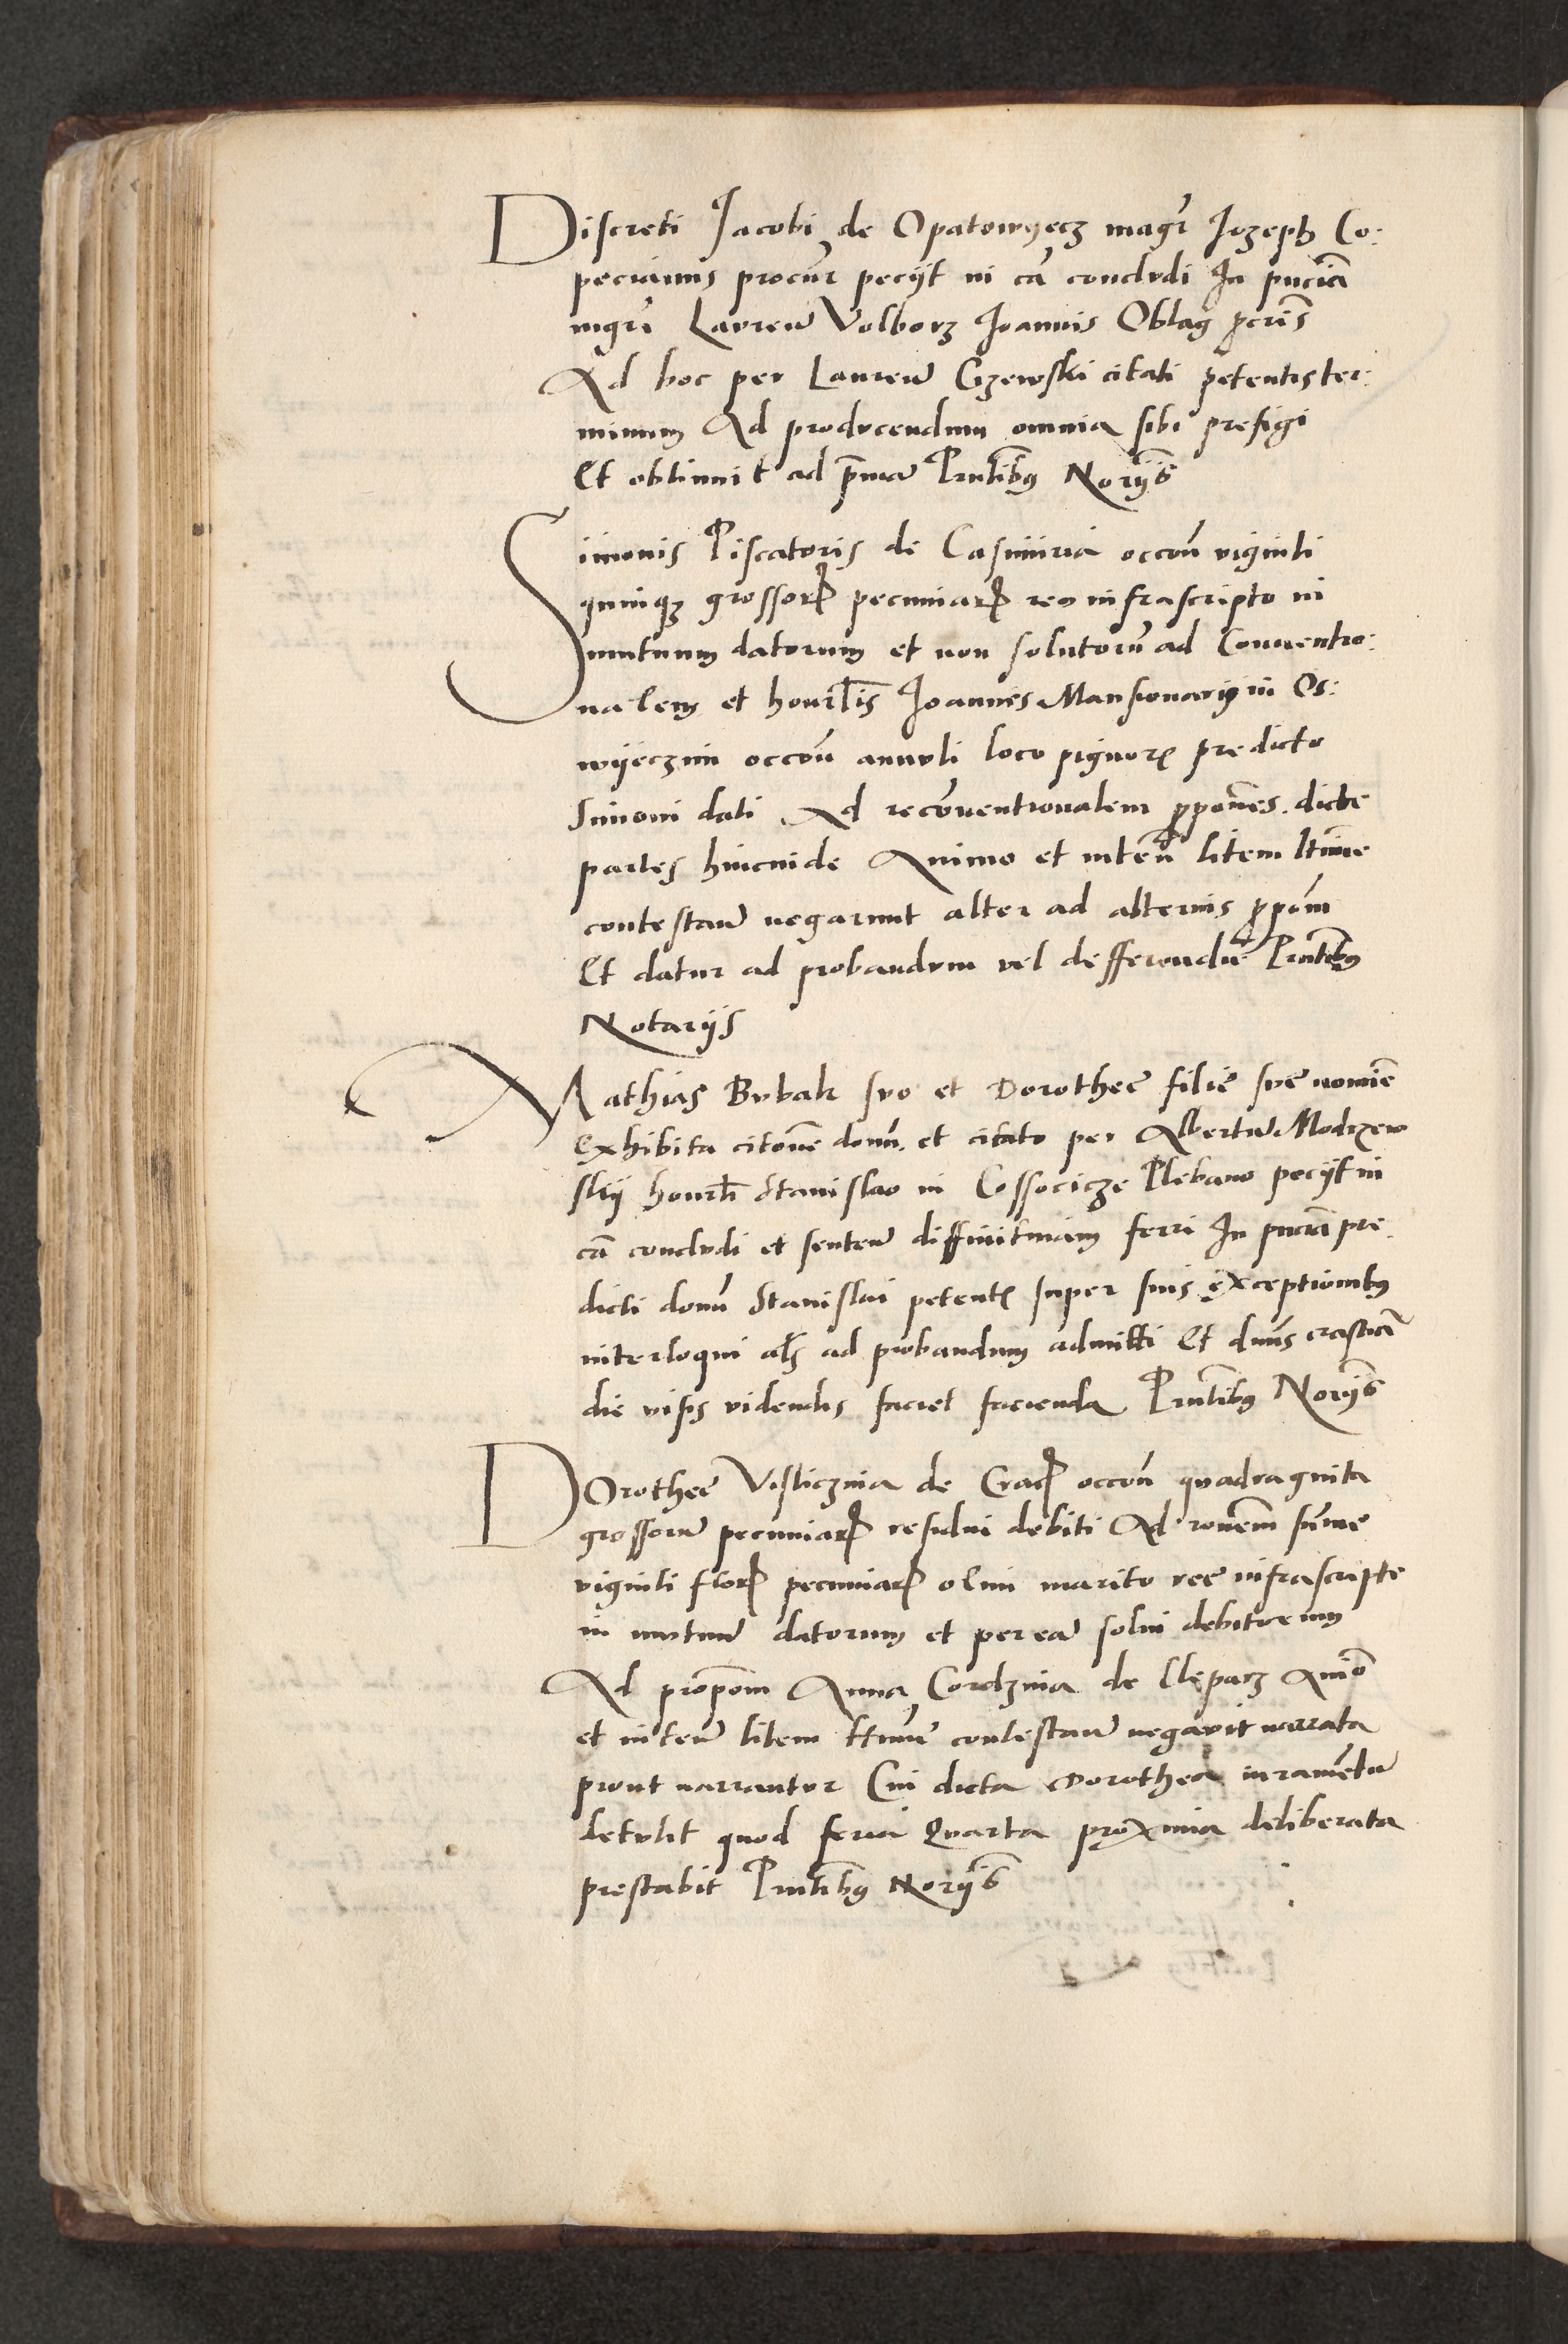 Discreti Jacobi de Opatowyecz magr̄ Jozeph Co:
pecianus procūr peciit in cā conclvdi In pn̄ciā
mgrī Lavren̄ Volborz Joannis Oblag pcrīs
Ad hoc per Lauren̄ Czewski citati petentis ter:
minum Ad prodvcendum omnia sibi prefigi
Et obtinuit ad pr̄mā Prn̄tibus Norijs
Simonis Piscatoris de Casimiria occoñ viginti
quinque grossorum pecuniarum reo infrascripto in
mutuum datorum et non solutorū ad Conuentio:
nalem et honrlīs Joannes Mansionarius in Os:
wyeczim occoñ annvli loco pignoris predicto
Simoni dati Ad recōventionalem ppoñes dicte
partes hincinde Animo et inteñ litem ltīme
contestan̄ negarunt alter ad alterius ppoñm
Et datur ad probandvm vel defferendū Prn̄tibus
Notarijs
Mathias Bvbak svo et Dorothee filie sve nomīe
Exhibita citoñe domī et citato per Albertū Modrzew
skij honrli Stanislao in Cossocicze Plebano peciit in
cā conclvdi et senten̄ diffinitiuam ferri In pn̄ciā pre
dicti domī Stanislai petentis super suis exceptionibus
interloqui als ad probandum admitti Et dn̄us crastīa
die visis videndis faciet facienda Prn̄tibus Norijs
Dorothee Visliczina de Crac occoñ qvadraginta
grossorū pecuniarum residui debiti Ad roñem sūme
viginti florum pecuniarum olim marito ree infrascripte
in mvtuū datorum et per eā solui debitorum
Ad propoñm Anna Cordzina de Clepacz Anīo
et inteñ litem ltīme contestan̄ negavit narrata
prout narrantvr Cui dicta Dorothea iuramētū
detvlit quod feria Qvarta proxima deliberata
prestabit Prn̄tibus Norijs